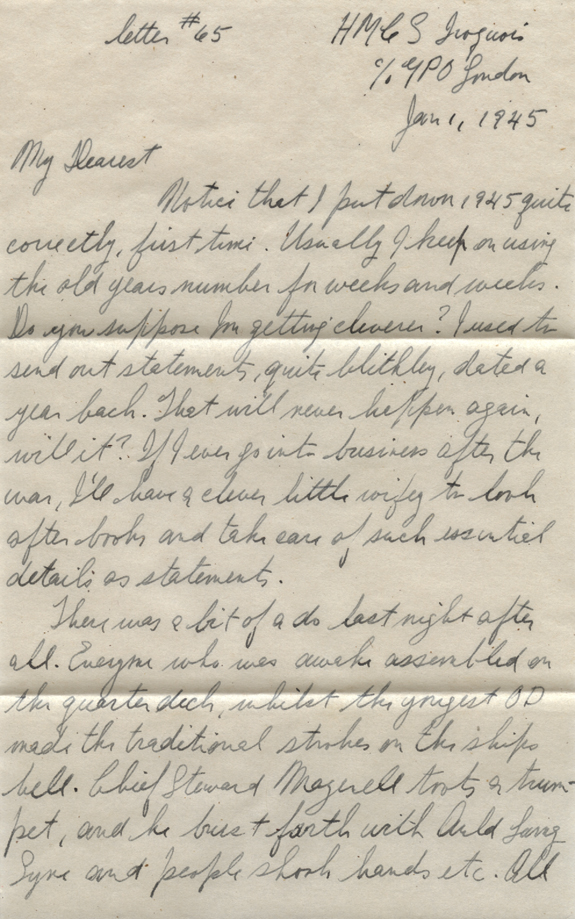 letter #65
HMCS Iroquois
c/o GPO London
Jan 1, 1945
My Dearest
Notice that I put down 1945 quite
correctly, first time. Usually I keep on using
the old years number for weeks and weeks.
Do you suppose I'm getting cleverer? I used to
send out statements, quite blithley, dated a
year back. That will never happen again,
will it? If I ever go into business after the
war, I'll have a clever little wifey to look
after books and take care of such essential
details as statements.
There was a bit of a do last night after
all. Everyone who was awake assembled on
the quarter deck, whilst the yongest OD
made the traditional strokes on the ships
bell. Chief Steward toots a trum-
pet, and he burst forth with Auld Lang
Syne and people shook hands etc. All